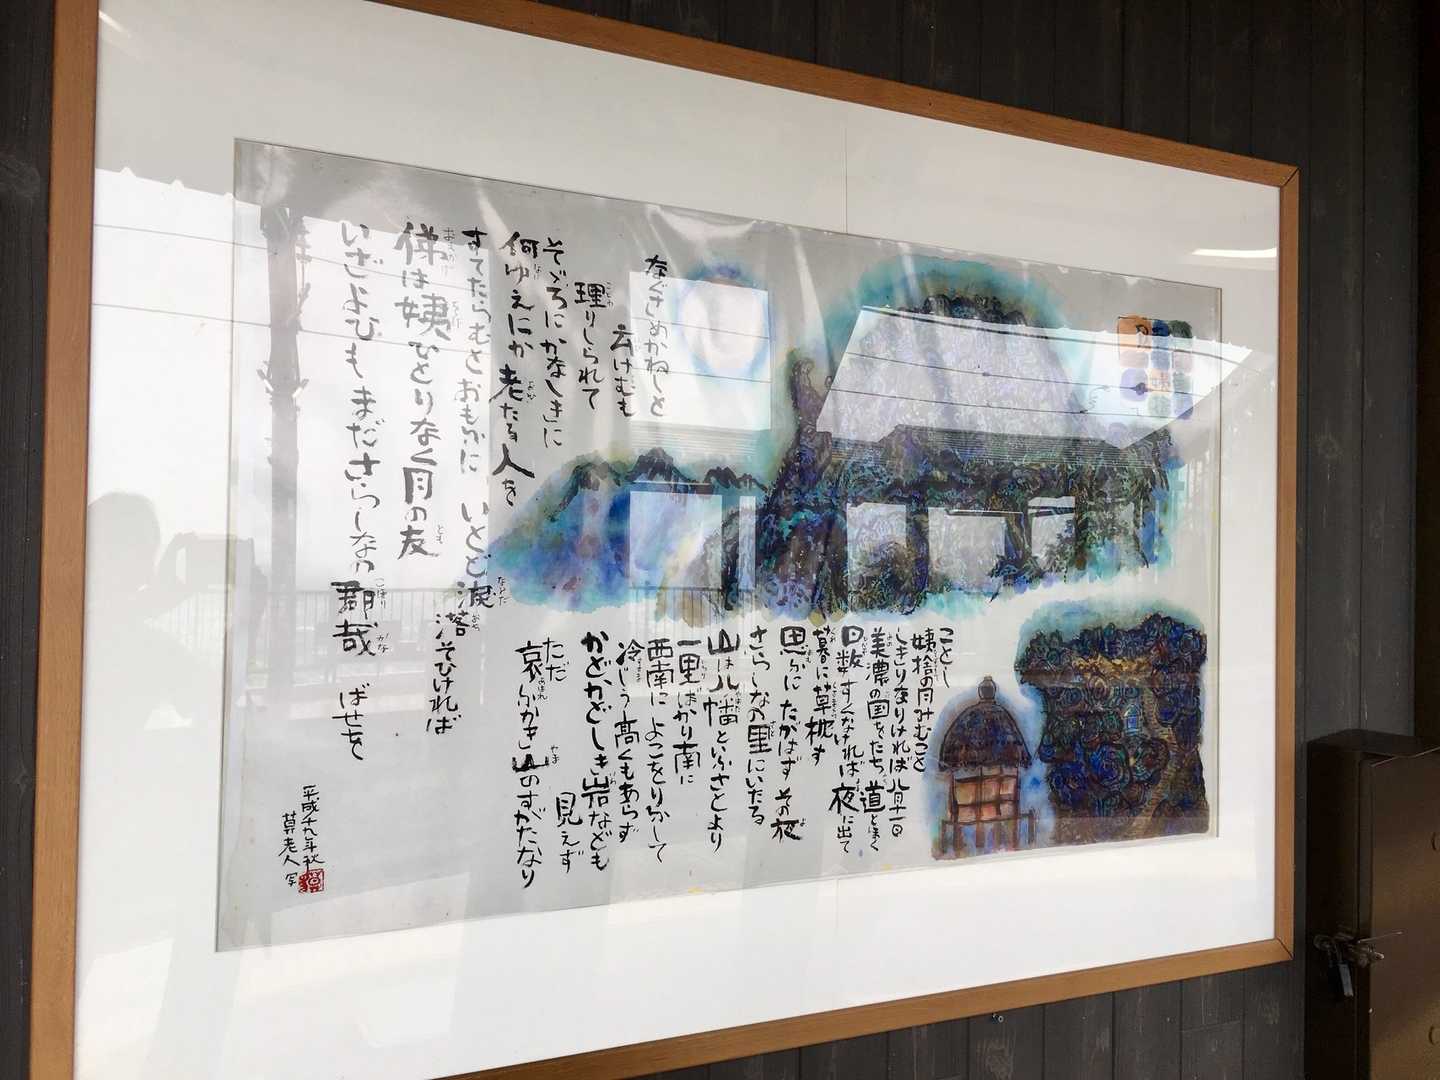 ことし
姨捨の月みむこと
しきりなりければ 八月十一日
美濃の国をたち 道とほく
日数すくなければ 夜に出て
暮に草枕す
思ふにたがはず その夜
さらしなの里にいたる
山は八幡といふさとより
一里ばかり南に
西南によこをりふして
冷じう高くもあらず
かどかどしき岩なども
見えず
ただ
哀ふかき山のすがたなり
なぐさめかねしと
云けむも
理りしられて
そゞろにかなしきに
何ゆえにか老たる人を
すてたらむとおもふに いとど涙
落そひければ
俤は姨ひとりなく月の友
いざよひもまださらしなの郡哉 ばせを
平成十九年秋
老人 写